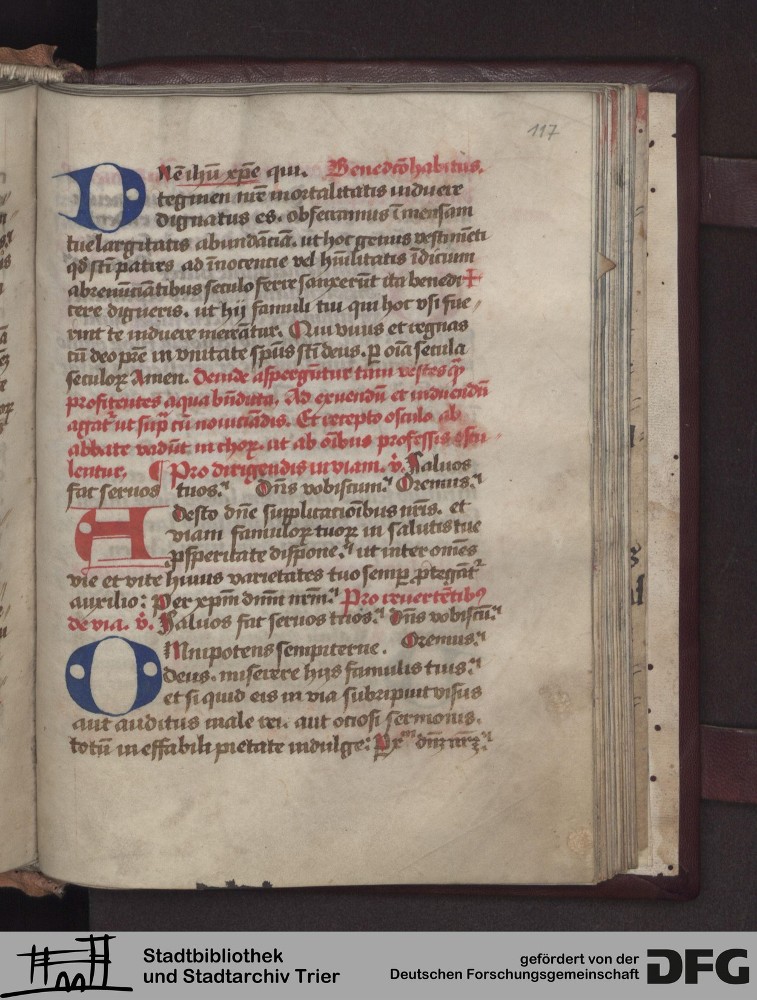 117
Dñe ihū xp̄e qui. Benedcō habitus.
tegimen nr̄e mortalitatis induere
dignatus es. obsecramus īmensam
tue largitatis abundāciā. ut hoc genus vestimēti
qd̓ sc̄ti patres ad īnocentie vel hūilitatis īdicium
abrenūciātibus seculo ferre sanxerūt ita benedi+
cere digneris. ut hij famuli tui qui hoc vsi fue
rint te induere mereātur. Qui viuis et regnas
cū deo pr̄e in vnitate sp̄us sc̄ti deus. ꝑ oīa secula
seculoꝝ Amen. Deinde aspergūtur tam vestes qͣ̄
profitentes aqua bn̄dicta. Ad exuendū et induendū
agatᷣ ut supͣ cū nouiciādis. Et recepto osculo ab
abbate vadūt in choꝝ. ut ab oībus professis oscu
lentur. ¶ Pro dirigendis in viam. v̄. Saluos
fac seruos tuos. Dñs vobiscum. Oremus.
Adesto dn̄e supplicacioībus nr̄is. et
viam famuloꝝ tuoꝝ in salutis tue
ꝓsperitate dispone. ut inter om̄es
vie et vite huius varietates tuo semꝑ ꝓtegātᷣ
auxilio: Per xp̄m dn̄m nr̄m. Pro reuertētibꝰ
de via. v̄. Saluos fac seruos tuos. Dñs vobiscū.
Omnipotens sempiterne. Oremus.
deus. miserere hijs famulis tuis.
et si quid eis in via subripuit visus
aut auditus male rei. aut ociosi sermonis.
totū ineffabili pietate indulge: Per dn̄m nr̄m.
Stadtbibliothek
und Stadtarchiv Trier
gefördert von der
Deutschen Forschungsgemeinschaft
DFG